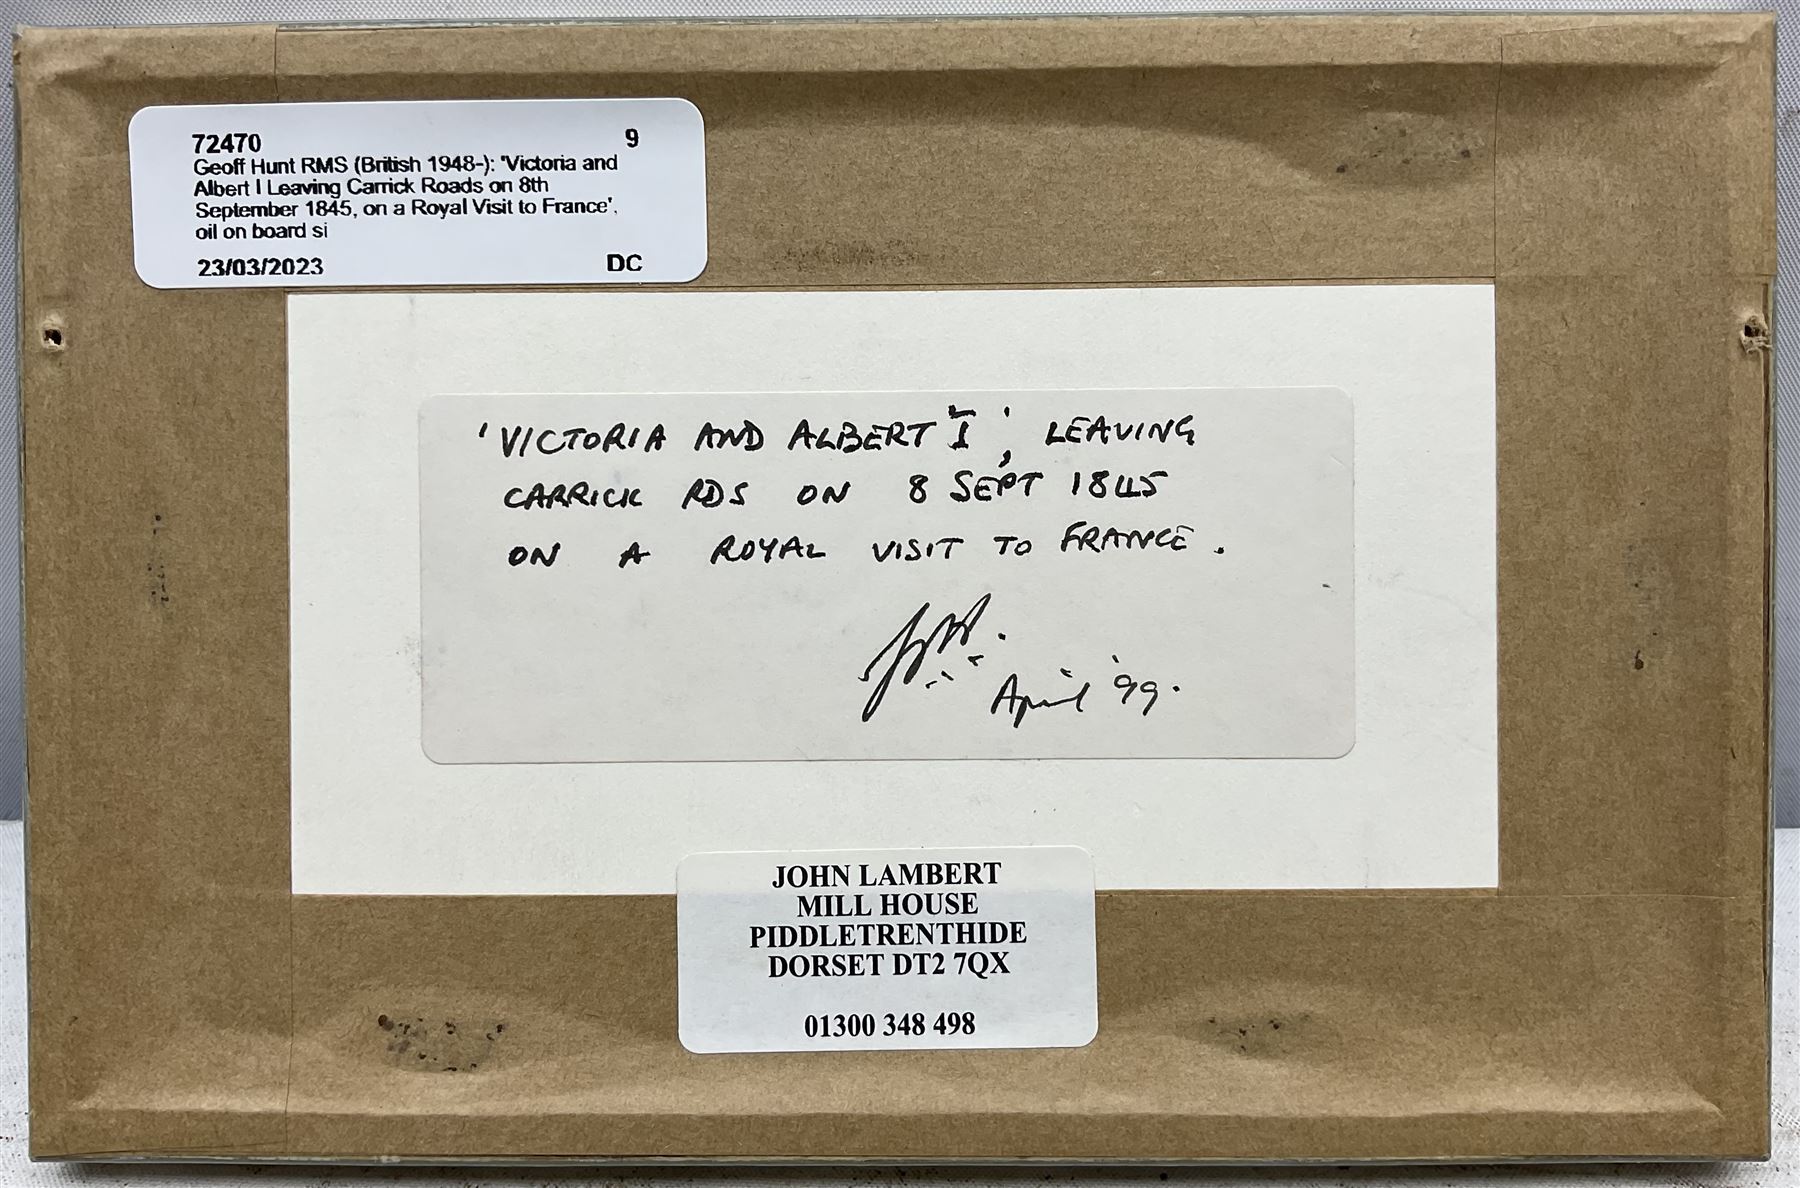 72470 9
Geoff Hunt RMS (British 1948-): 'Victoria and
Albert I Leaving Carrick Roads on 8th
September 1845, on a Royal Visit to France',
oil on board si
23/03/2023 DC
'VICTORIA AND ALBERT I', LEAVING
CARRICK RDS ON 8 SEPT 1845
ON A ROYAL VISIT TO FRANCE.
April '99.
JOHN LAMBERT
MILL HOUSE
PIDDLETRENTHIDE
DORSET DT2 7QX
01300 348 498